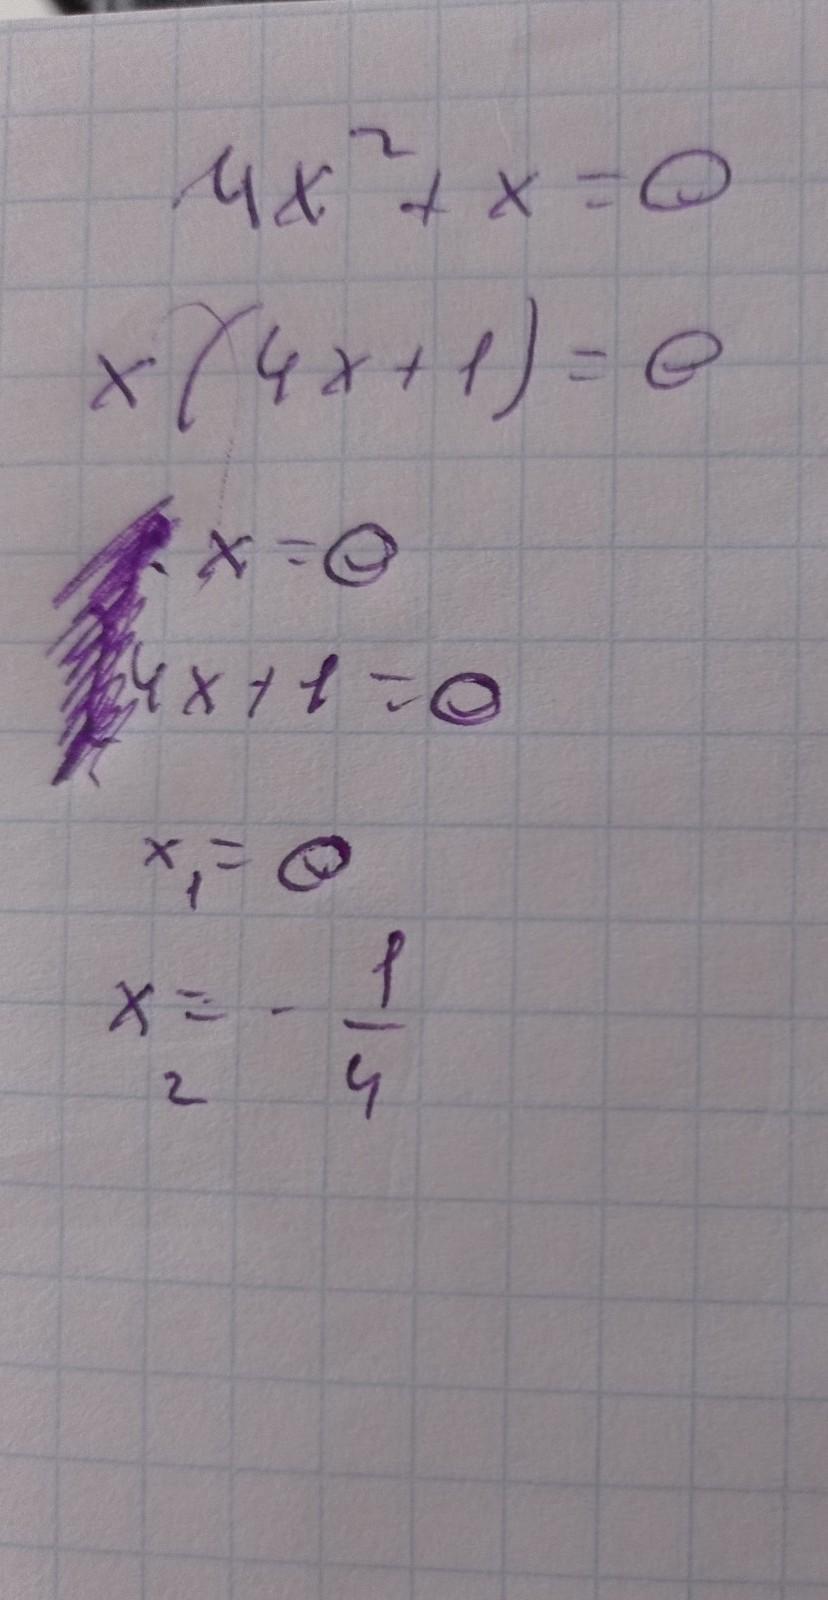 4x² + x = 0
x(4x+1) = 0
x = 0
4x+1 = 0
x₁ = 0
x₂ = - 1/4